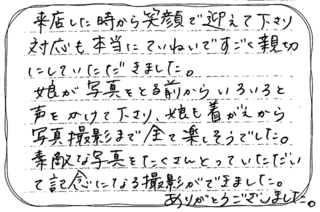 来店した時から笑顔で迎えて下さり
対応も本当にていねいですごく親切
にしていただきました。
娘が写真をとる前からいろいろと
声をかけて下さり、娘も着がえから
写真撮影まで全て楽しそうでした。
素敵な写真をたくさんとっていただい
て記念になる撮影ができました。
ありがとうございました。